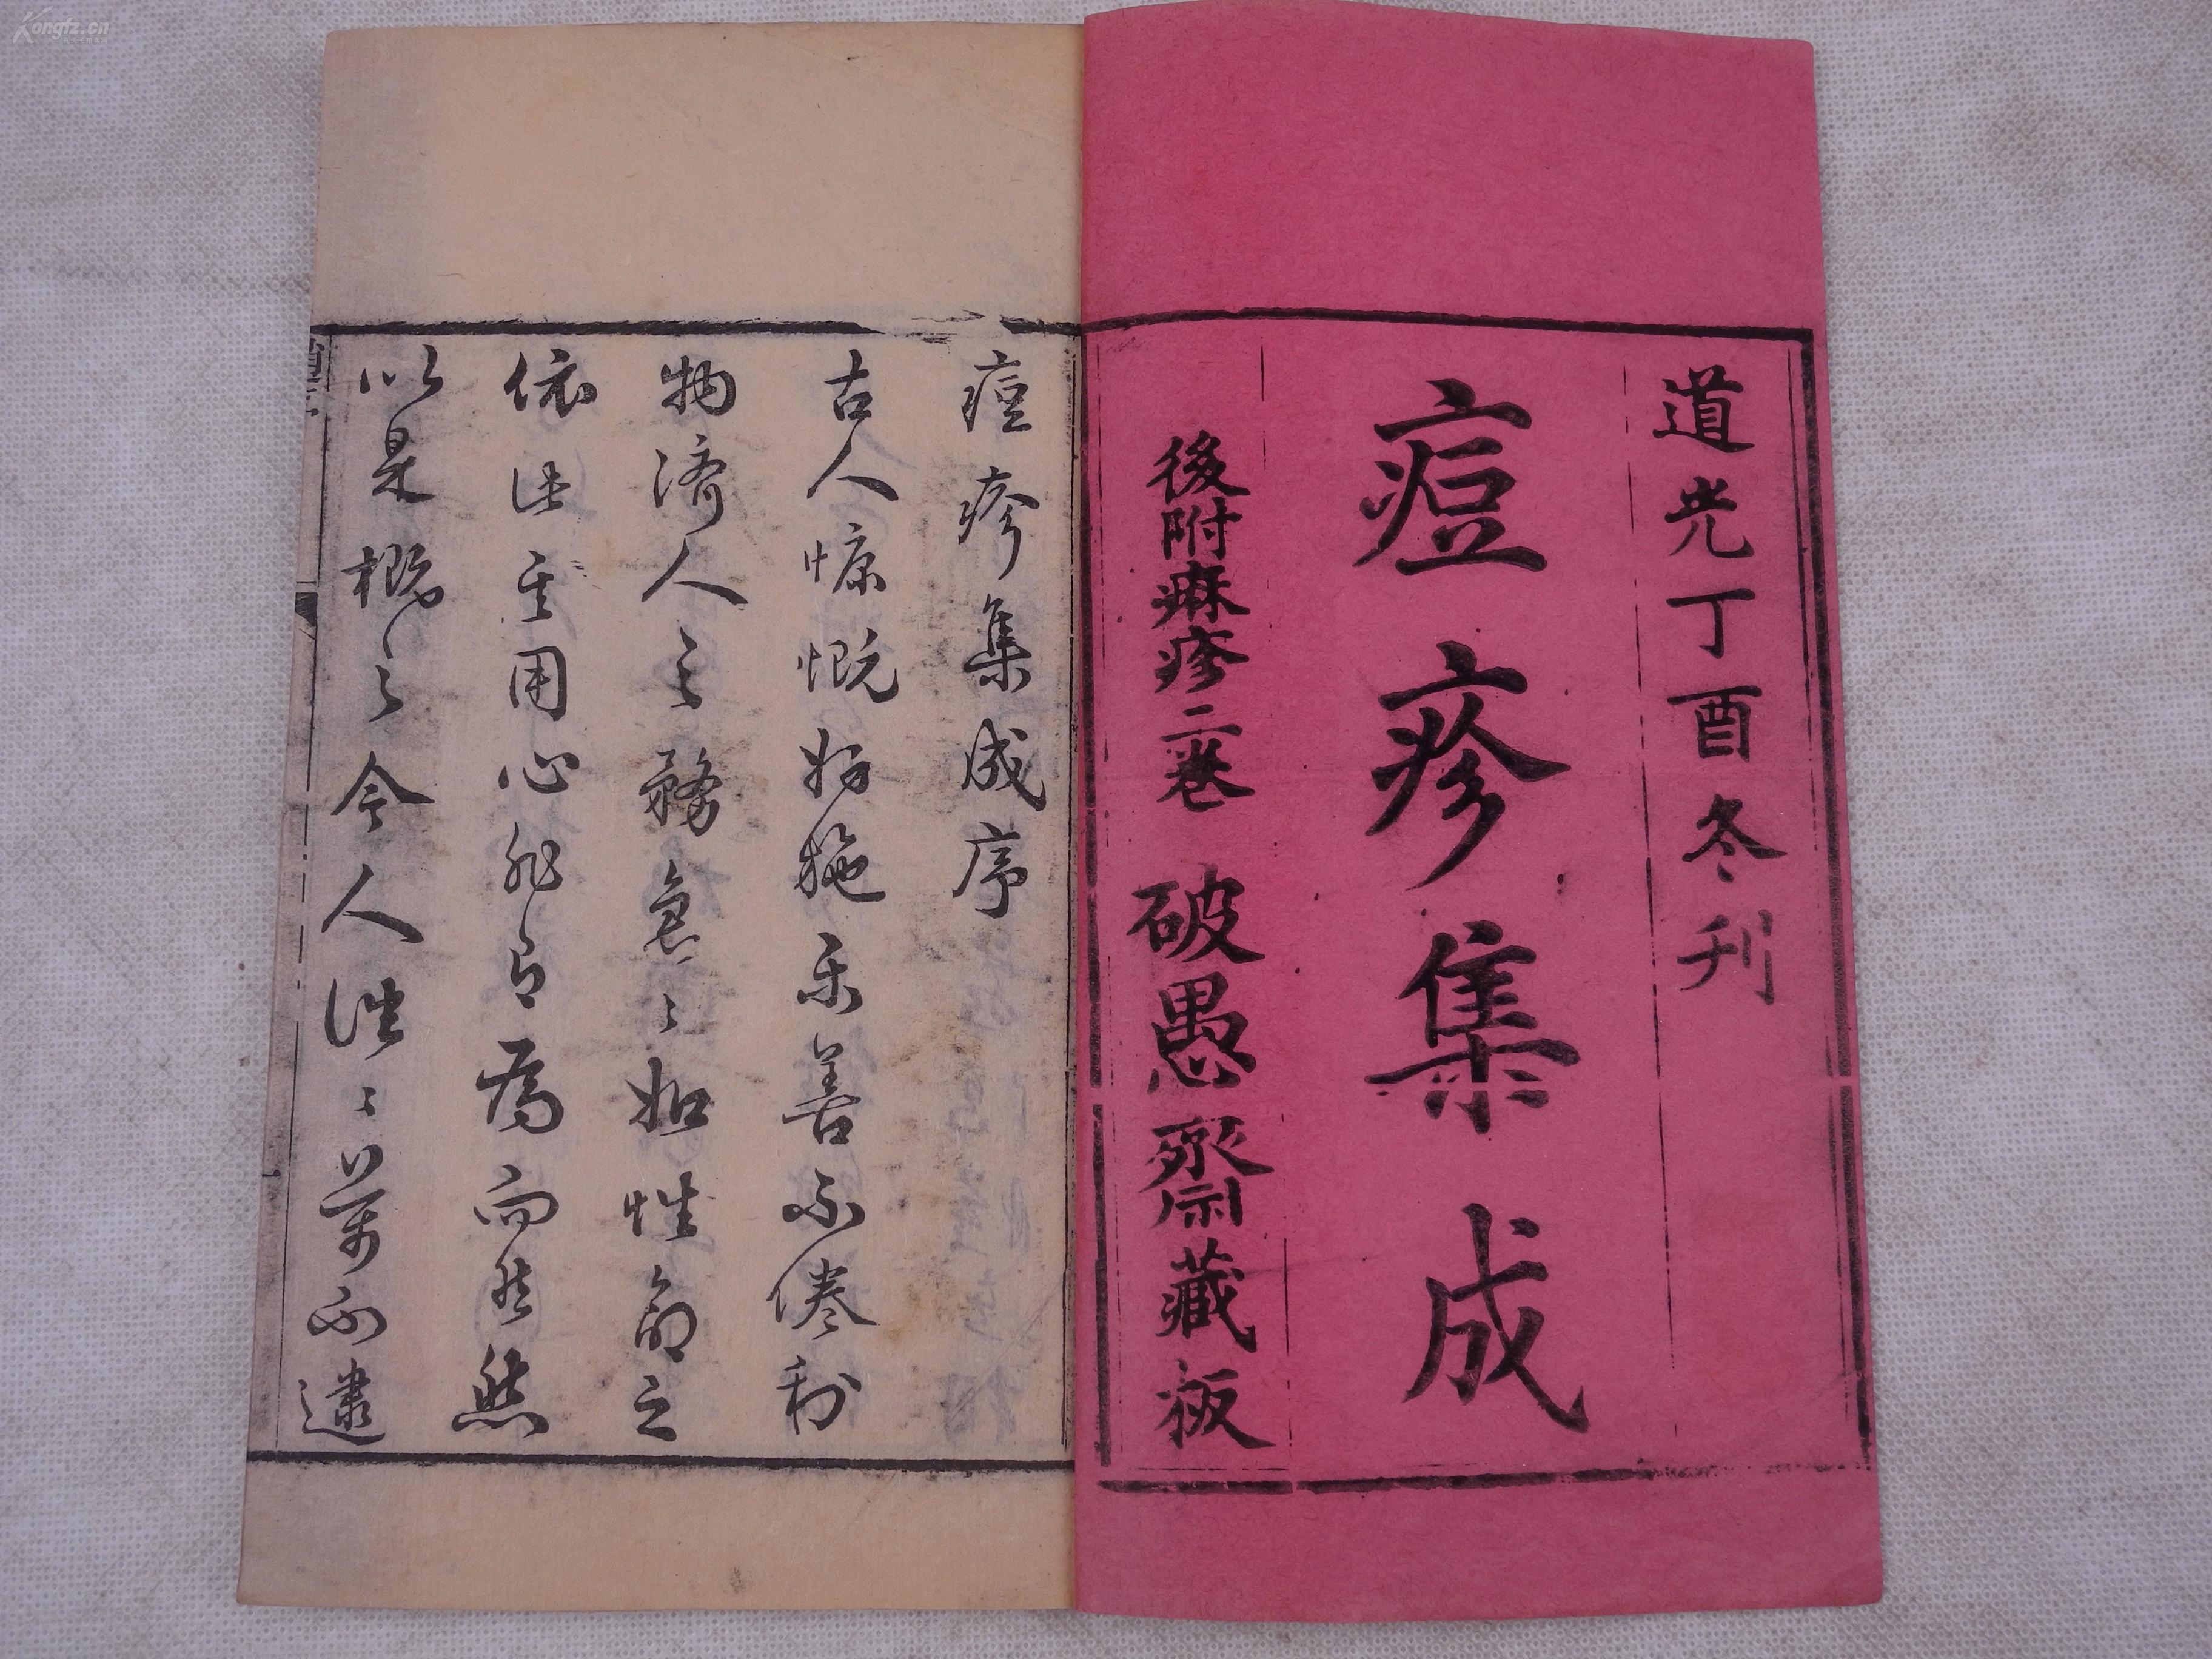 Kongfz.cn
道光丁酉冬刊
痘疹集成
後附痳疹二卷 破愚齋藏板
痘疹集成序
古人慷慨好施樂善不倦利
物濟人之務急々如性命之
依注其用心非有為而然然
以是概之今人往々萬不逮